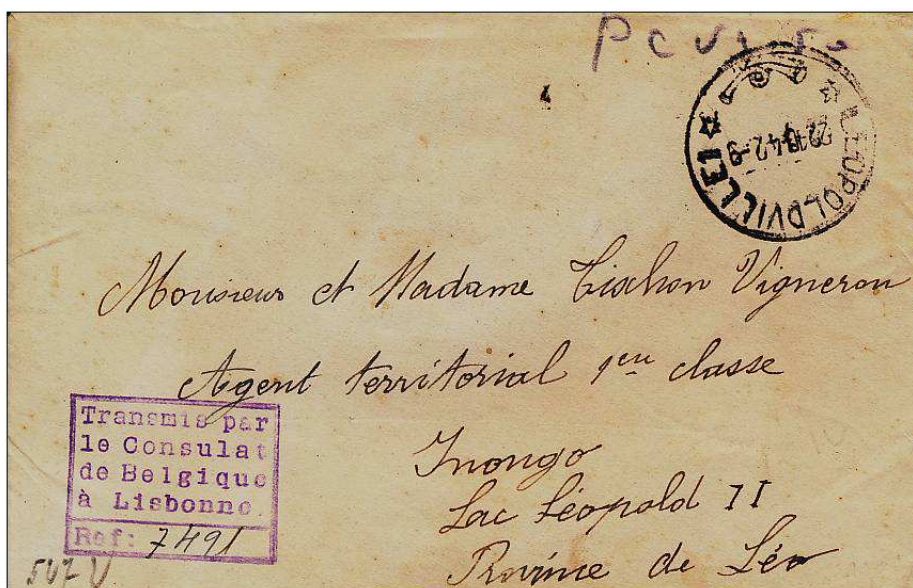 LEOPOLDVILLE 1
Monsieur et Madame Tischon Vigneron
Agent territorial 1ère classe
Inongo
Lac Léopold II
Province de Léo
Transmis par
le Consulat
de Belgique
à Lisbonne.
Ref: 7491